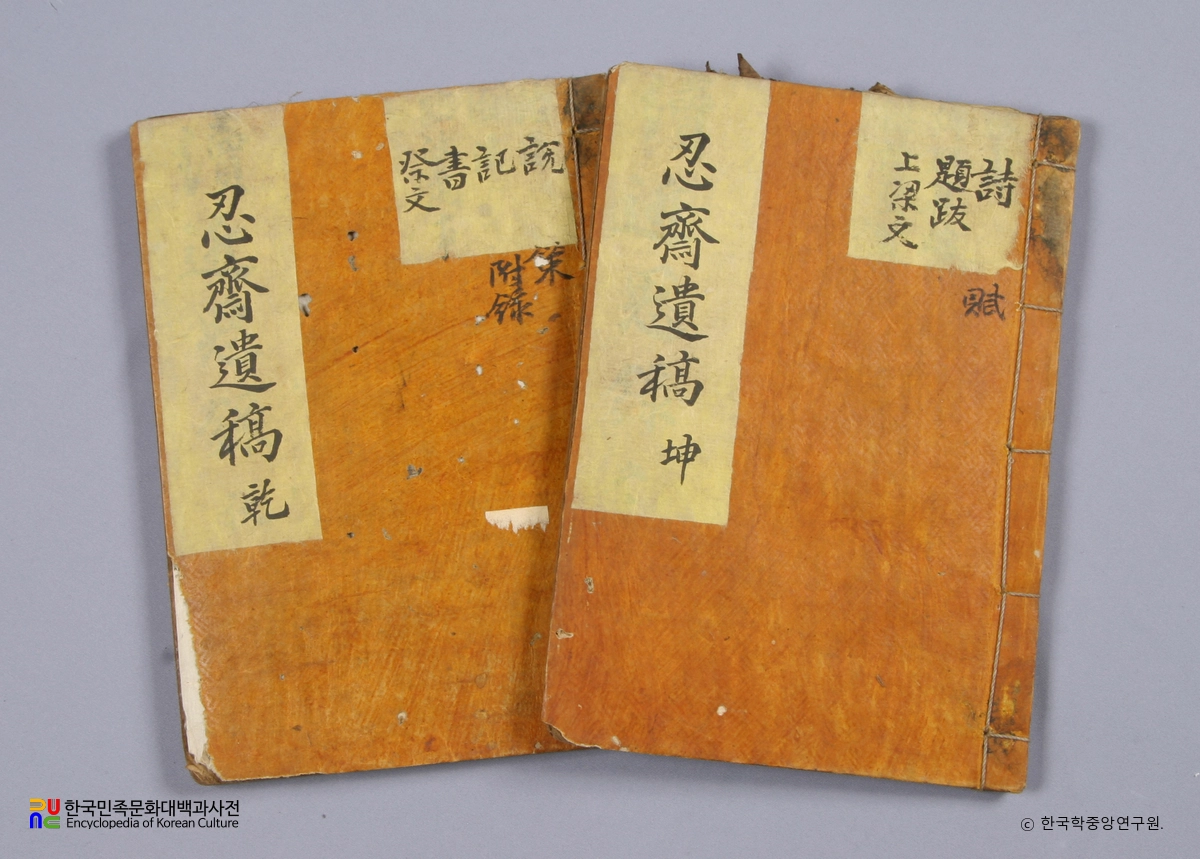 忍齋遺稿 乾
說
記
書
祭文
策
附錄
忍齋遺稿 坤
詩
題跋
上梁文
賦
한국민족문화대백과사전
Encyclopedia of Korean Culture
ⓒ 한국학중앙연구원.